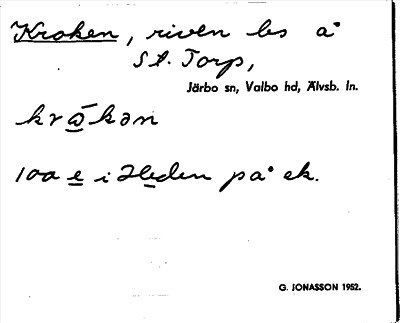 Kroken, riven ls å
St. Torp,
Järbo sn, Valbo hd, Älvsb. ln.
krω̄́kən
100 e i Heden på ek.
G. JONASSON 1952.